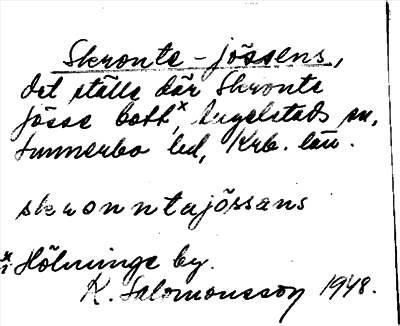 Skronte-jössens,
det ställe där Skronte
jösse bott,ˣ Angelstads sn,
Sunnerbo hd, Krb. län.
skronntajössans
x i Hölminge by.
K. Salomonsson 1948.